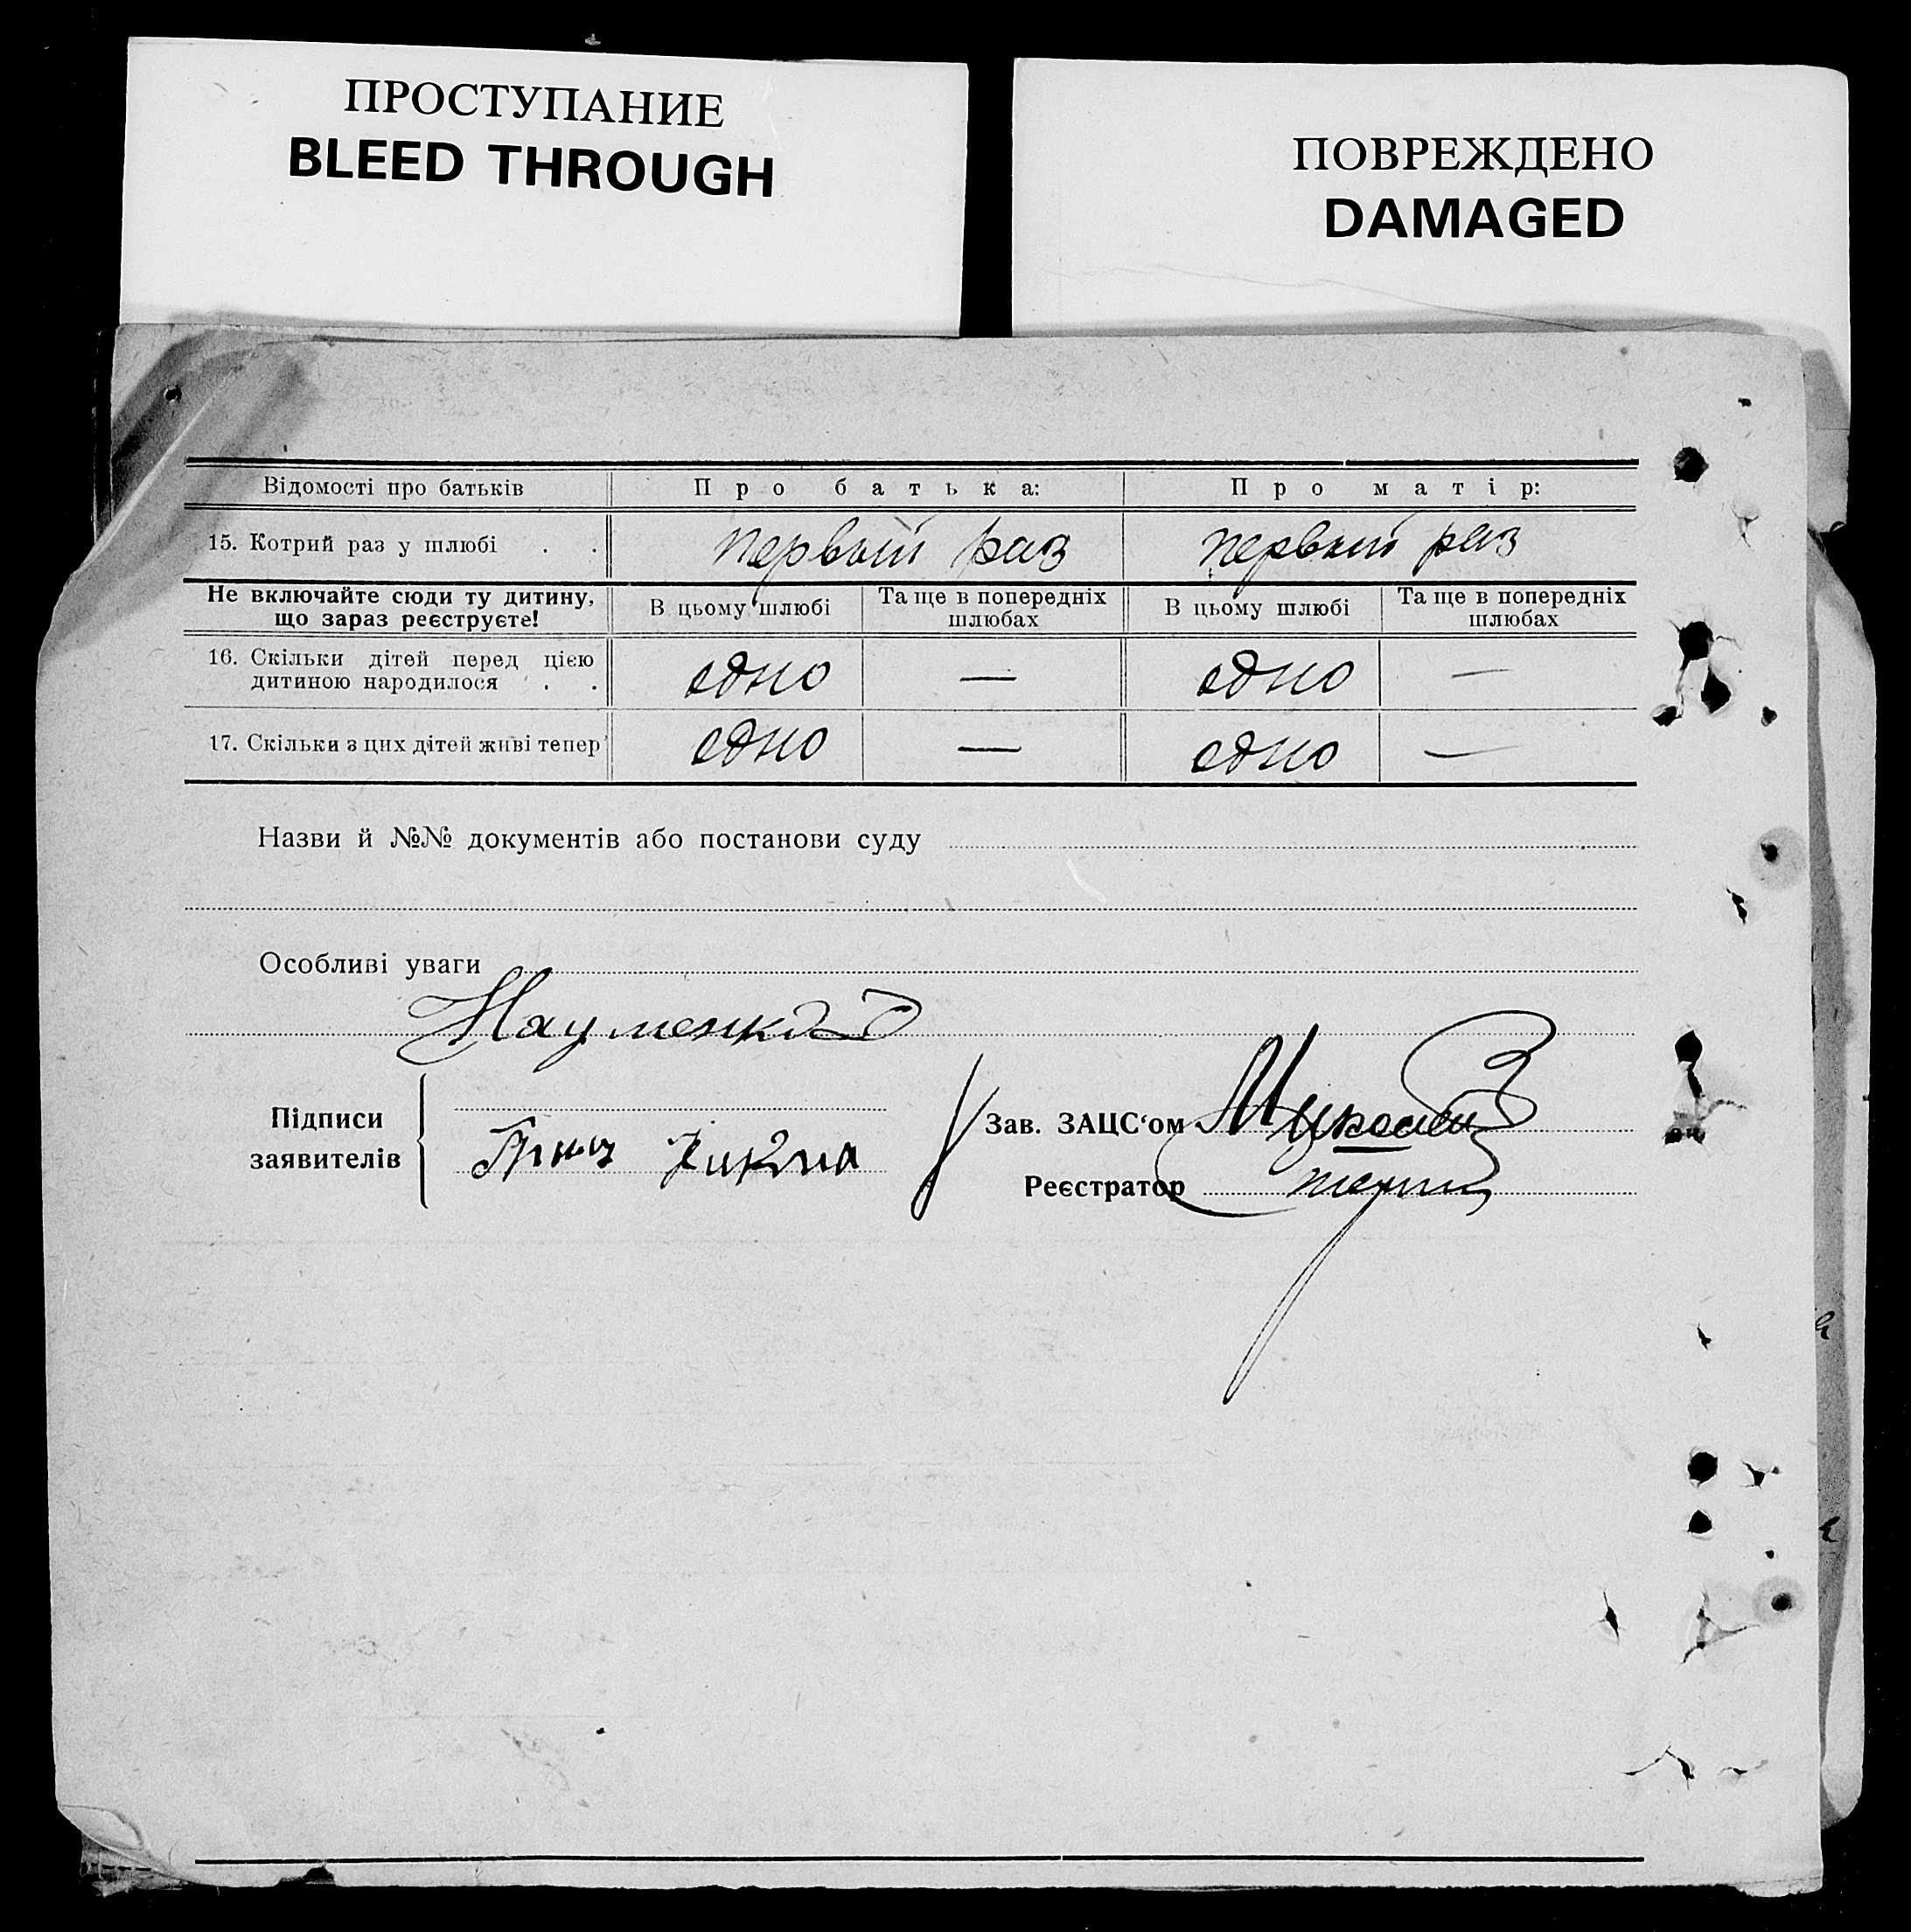 ПРОСТУПАНИЕ
BLEED THROUGH
ПОВРЕЖДЕНО
DAMAGED
Відомості про батьків Про батька: Про матір:
15. Котрий раз у шлюбі . . первый раз первый раз
Не включайте сюди ту дитину, що зараз реєструєте! В цьому шлюбі Та ще в попередніх шлюбах В цьому шлюбі Та ще в попередніх шлюбах
16. Скільки дітей перед цією дитиною народилося . . одно — одно —
17. Скільки з цих дітей живі тепер одно — одно —
Назви й №№ документів або постанови суду
Особливі уваги
Науменко
Підписи заявителів
Зав. ЗАЦС‘ом
Реєстратор